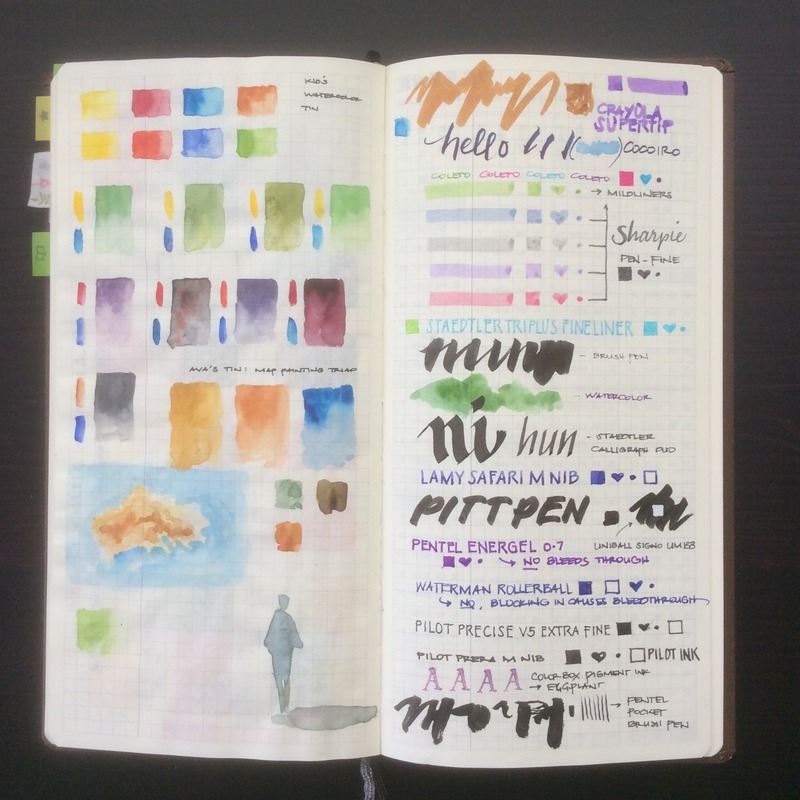 KID'S
WATERCOLOR
TIN
AVA'S TIN: MAP PAINTING TRIAD
CRAYOLA
SUPERTIP
hello
COCOIRO
COLETO COLETO COLETO COLETO
MILDLINERS
Sharpie
PEN-FINE
STAEDTLER TRIPLUS FINELINER
BRUSH PEN
WATERCOLOR
ni hun
STAEDTLER
CALLIGRAPH DUO
LAMY SAFARI M NIB
PITT PEN
PENTEL ENERGEL 0.7
UNIBALL SIGNO UM153
NO BLEEDS THROUGH
WATERMAN ROLLERBALL
NO, BLOCKING IN CAUSES BLEEDTHROUGH
PILOT PRECISE V5 EXTRA FINE
PILOT PRERA M NIB
PILOT INK
A A A A
COLORBOX PIGMENT INK
EGGPLANT
PENTEL
POCKET
BRUSH PEN